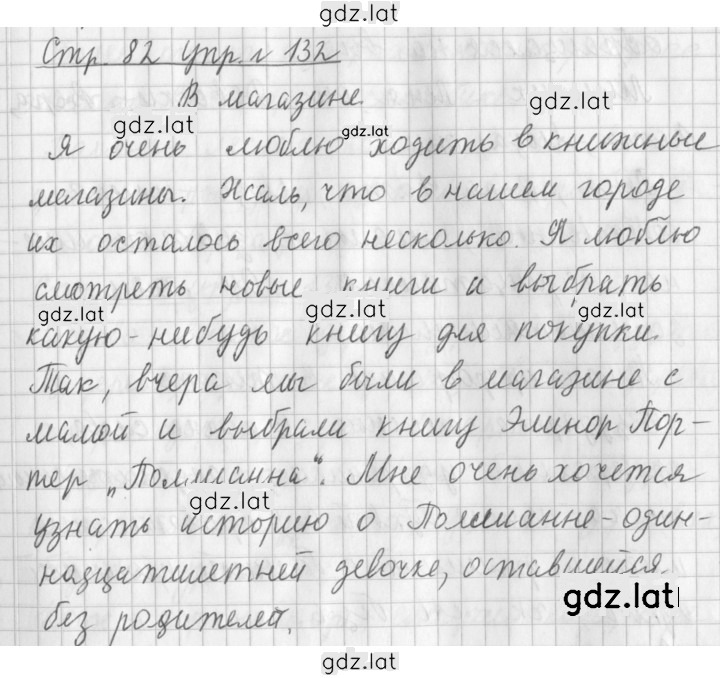 gdz.lat
Стр. 82 упр. № 132
В магазине.
gdz.lat
gdz.lat
gdz.lat
Я очень люблю ходить в книжные
магазины. Жаль, что в нашем городе
их осталось всего несколько. Я люблю
смотреть новые книги и выбрать
gdz.lat
gdz.lat
gdz.lat
какую-нибудь книгу для покупки.
Так, вчера мы были в магазине с
мамой и выбрали книгу Элинор Пор-
тер „Поллианна“. Мне очень хочется
gdz.lat
узнать историю о Поллианне - один-
надцатилетней девочке, оставшейся
gdz.lat
без родителей.
gdz.lat